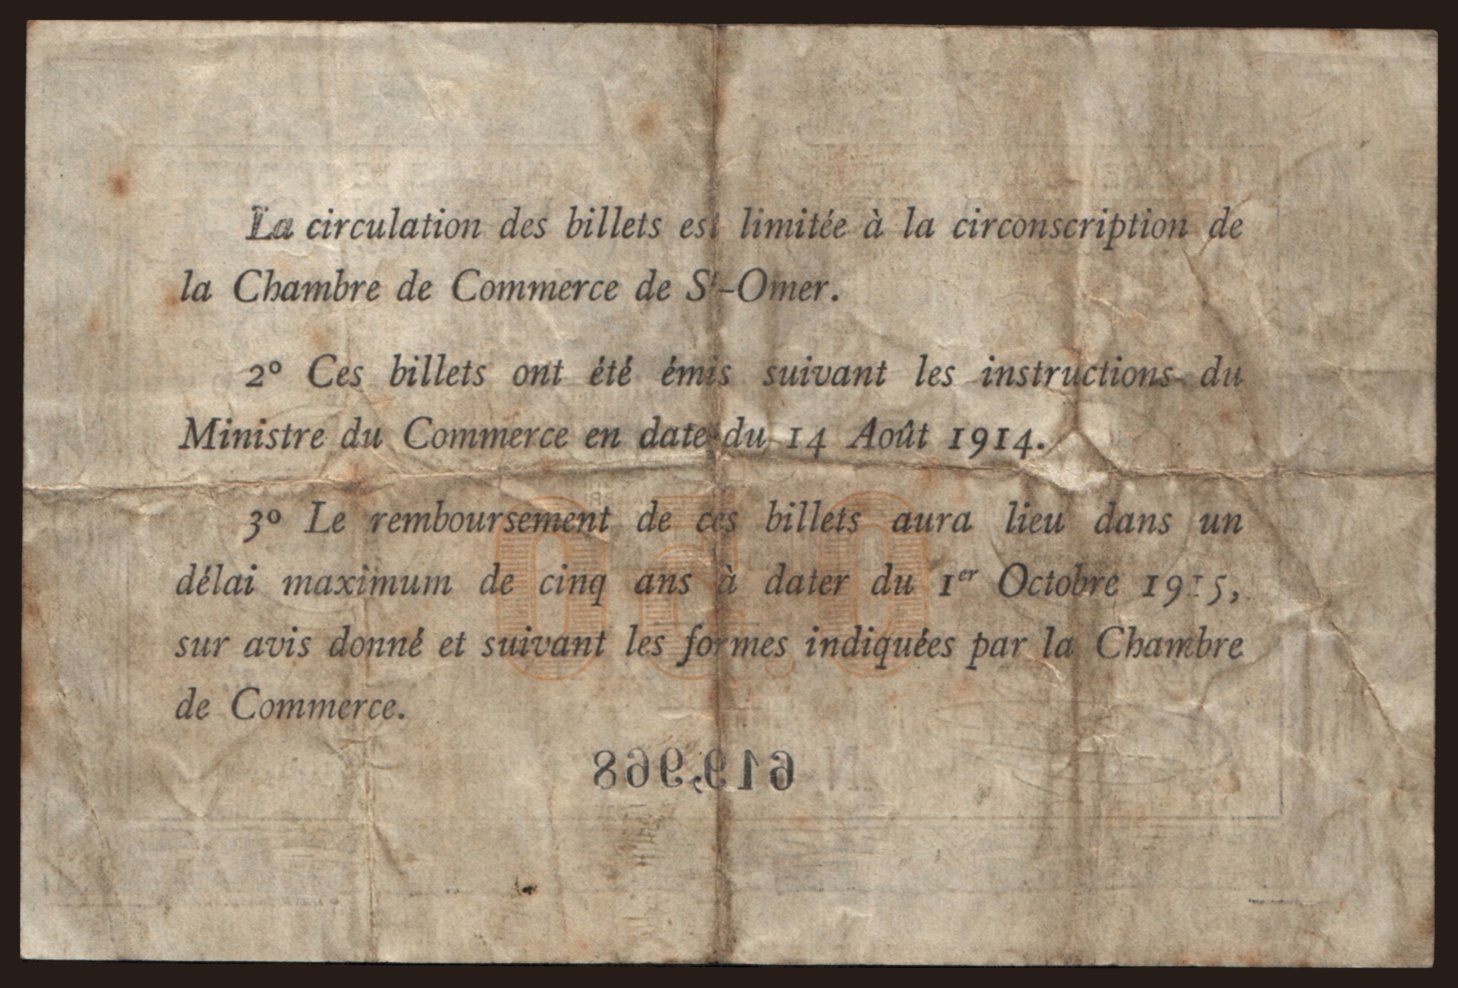 La circulation des billets est limitée à la circonscription de
la Chambre de Commerce de St-Omer.
2º Ces billets ont été émis suivant les instructions du
Ministre du Commerce en date du 14 Août 1914.
3º Le remboursement de ces billets aura lieu dans un
délai maximum de cinq ans à dater du 1er Octobre 1915,
sur avis donné et suivant les formes indiquées par la Chambre
de Commerce.
619,968